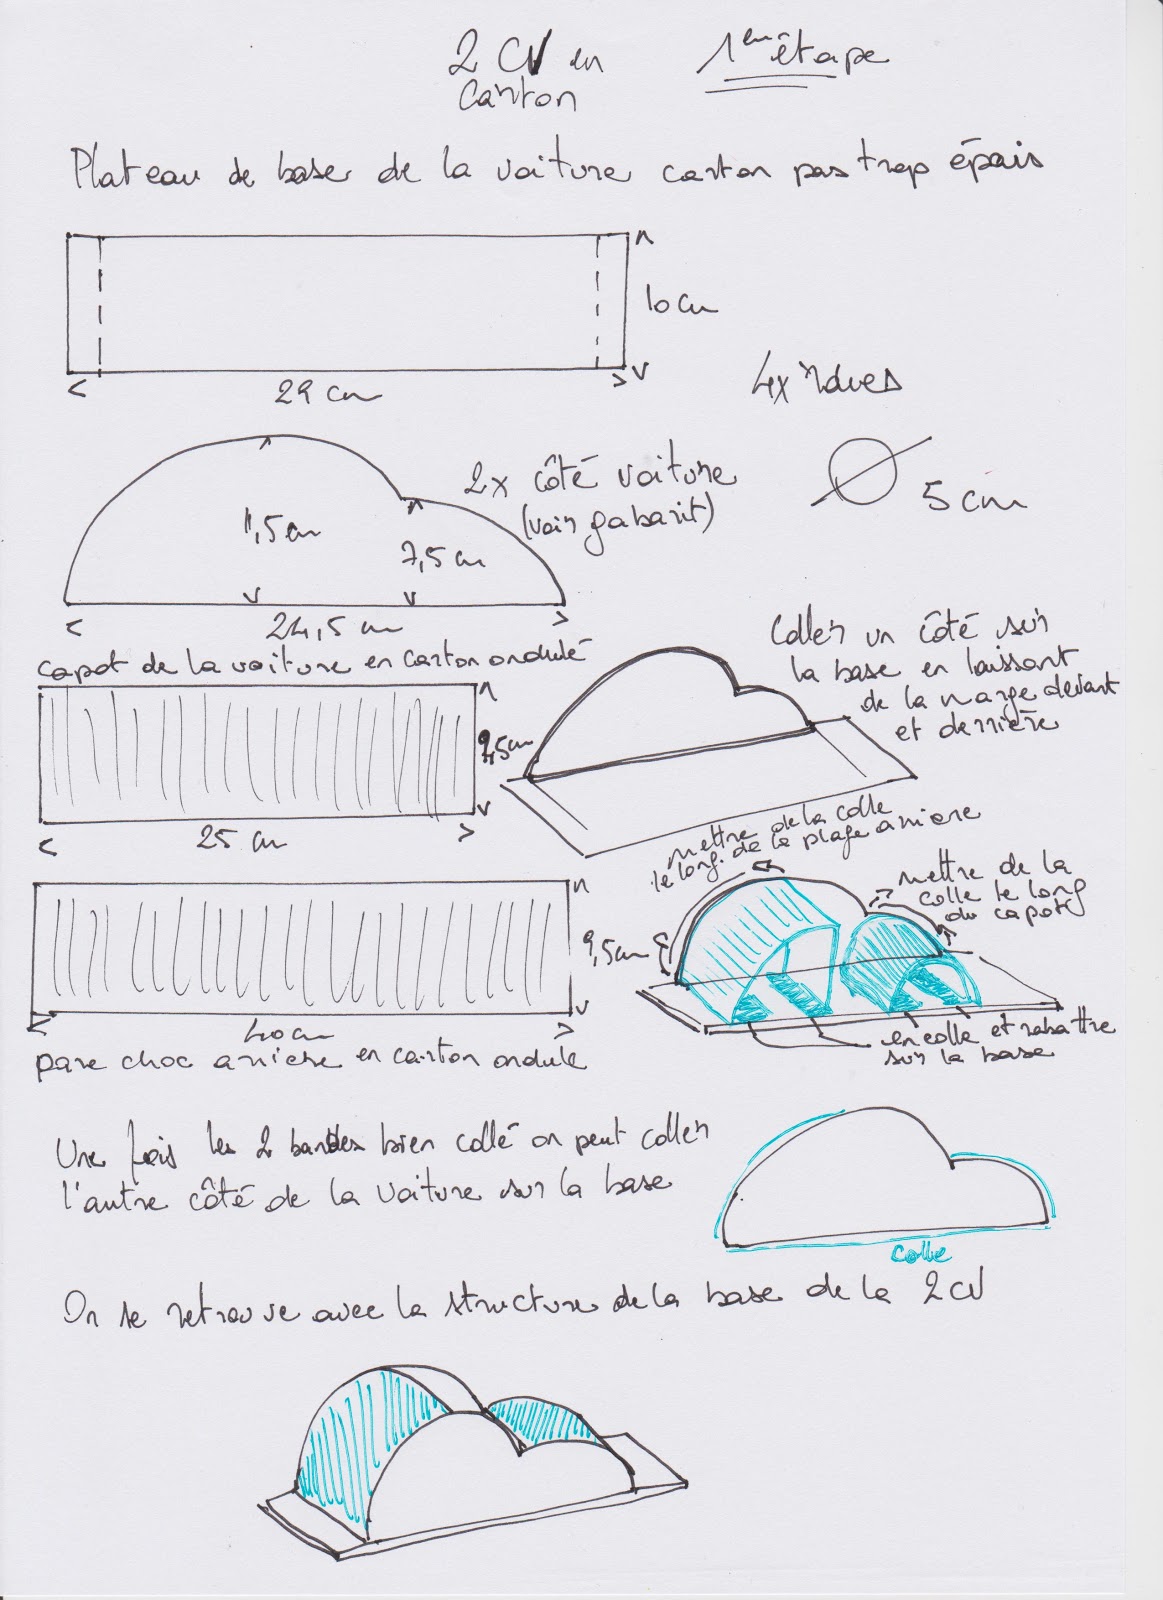 2 CV en
carton
1ere étape
Plateau de base de la voiture carton pas trop épais
10 cm
29 cm
4x roues
5 cm
2x côté voiture
(voir gabarit)
11,5 cm
7,5 cm
24,5 cm
capot de la voiture en carton ondulé
9,5 cm
25 cm
Coller un côté sur
la base en laissant
de la marge devant
et derrière
mettre de la colle
le long de la plage arriere
mettre de la
colle le long
du capot
9,5 cm
40 cm
en colle et rabattre
sur la base
pare choc arriere en carton ondulé
Une fois les 2 bandes bien collé on peut coller
l'autre côté de la voiture sur la base
colle
On se retrouve avec la structure de la base de la 2 CV